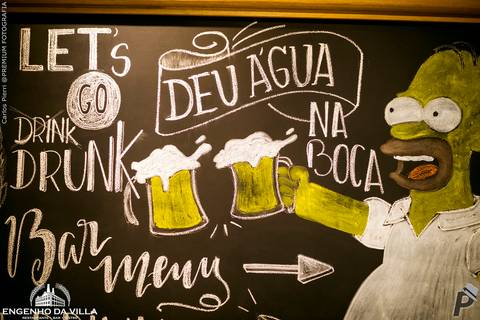 LET'S
GO
DRINK
DRUNK
DEU ÁGUA
NA
BOCA
Bar
menu
Carlos Pierri @PREMIUM FOTOGRAFIA
ENGENHO DA VILLA